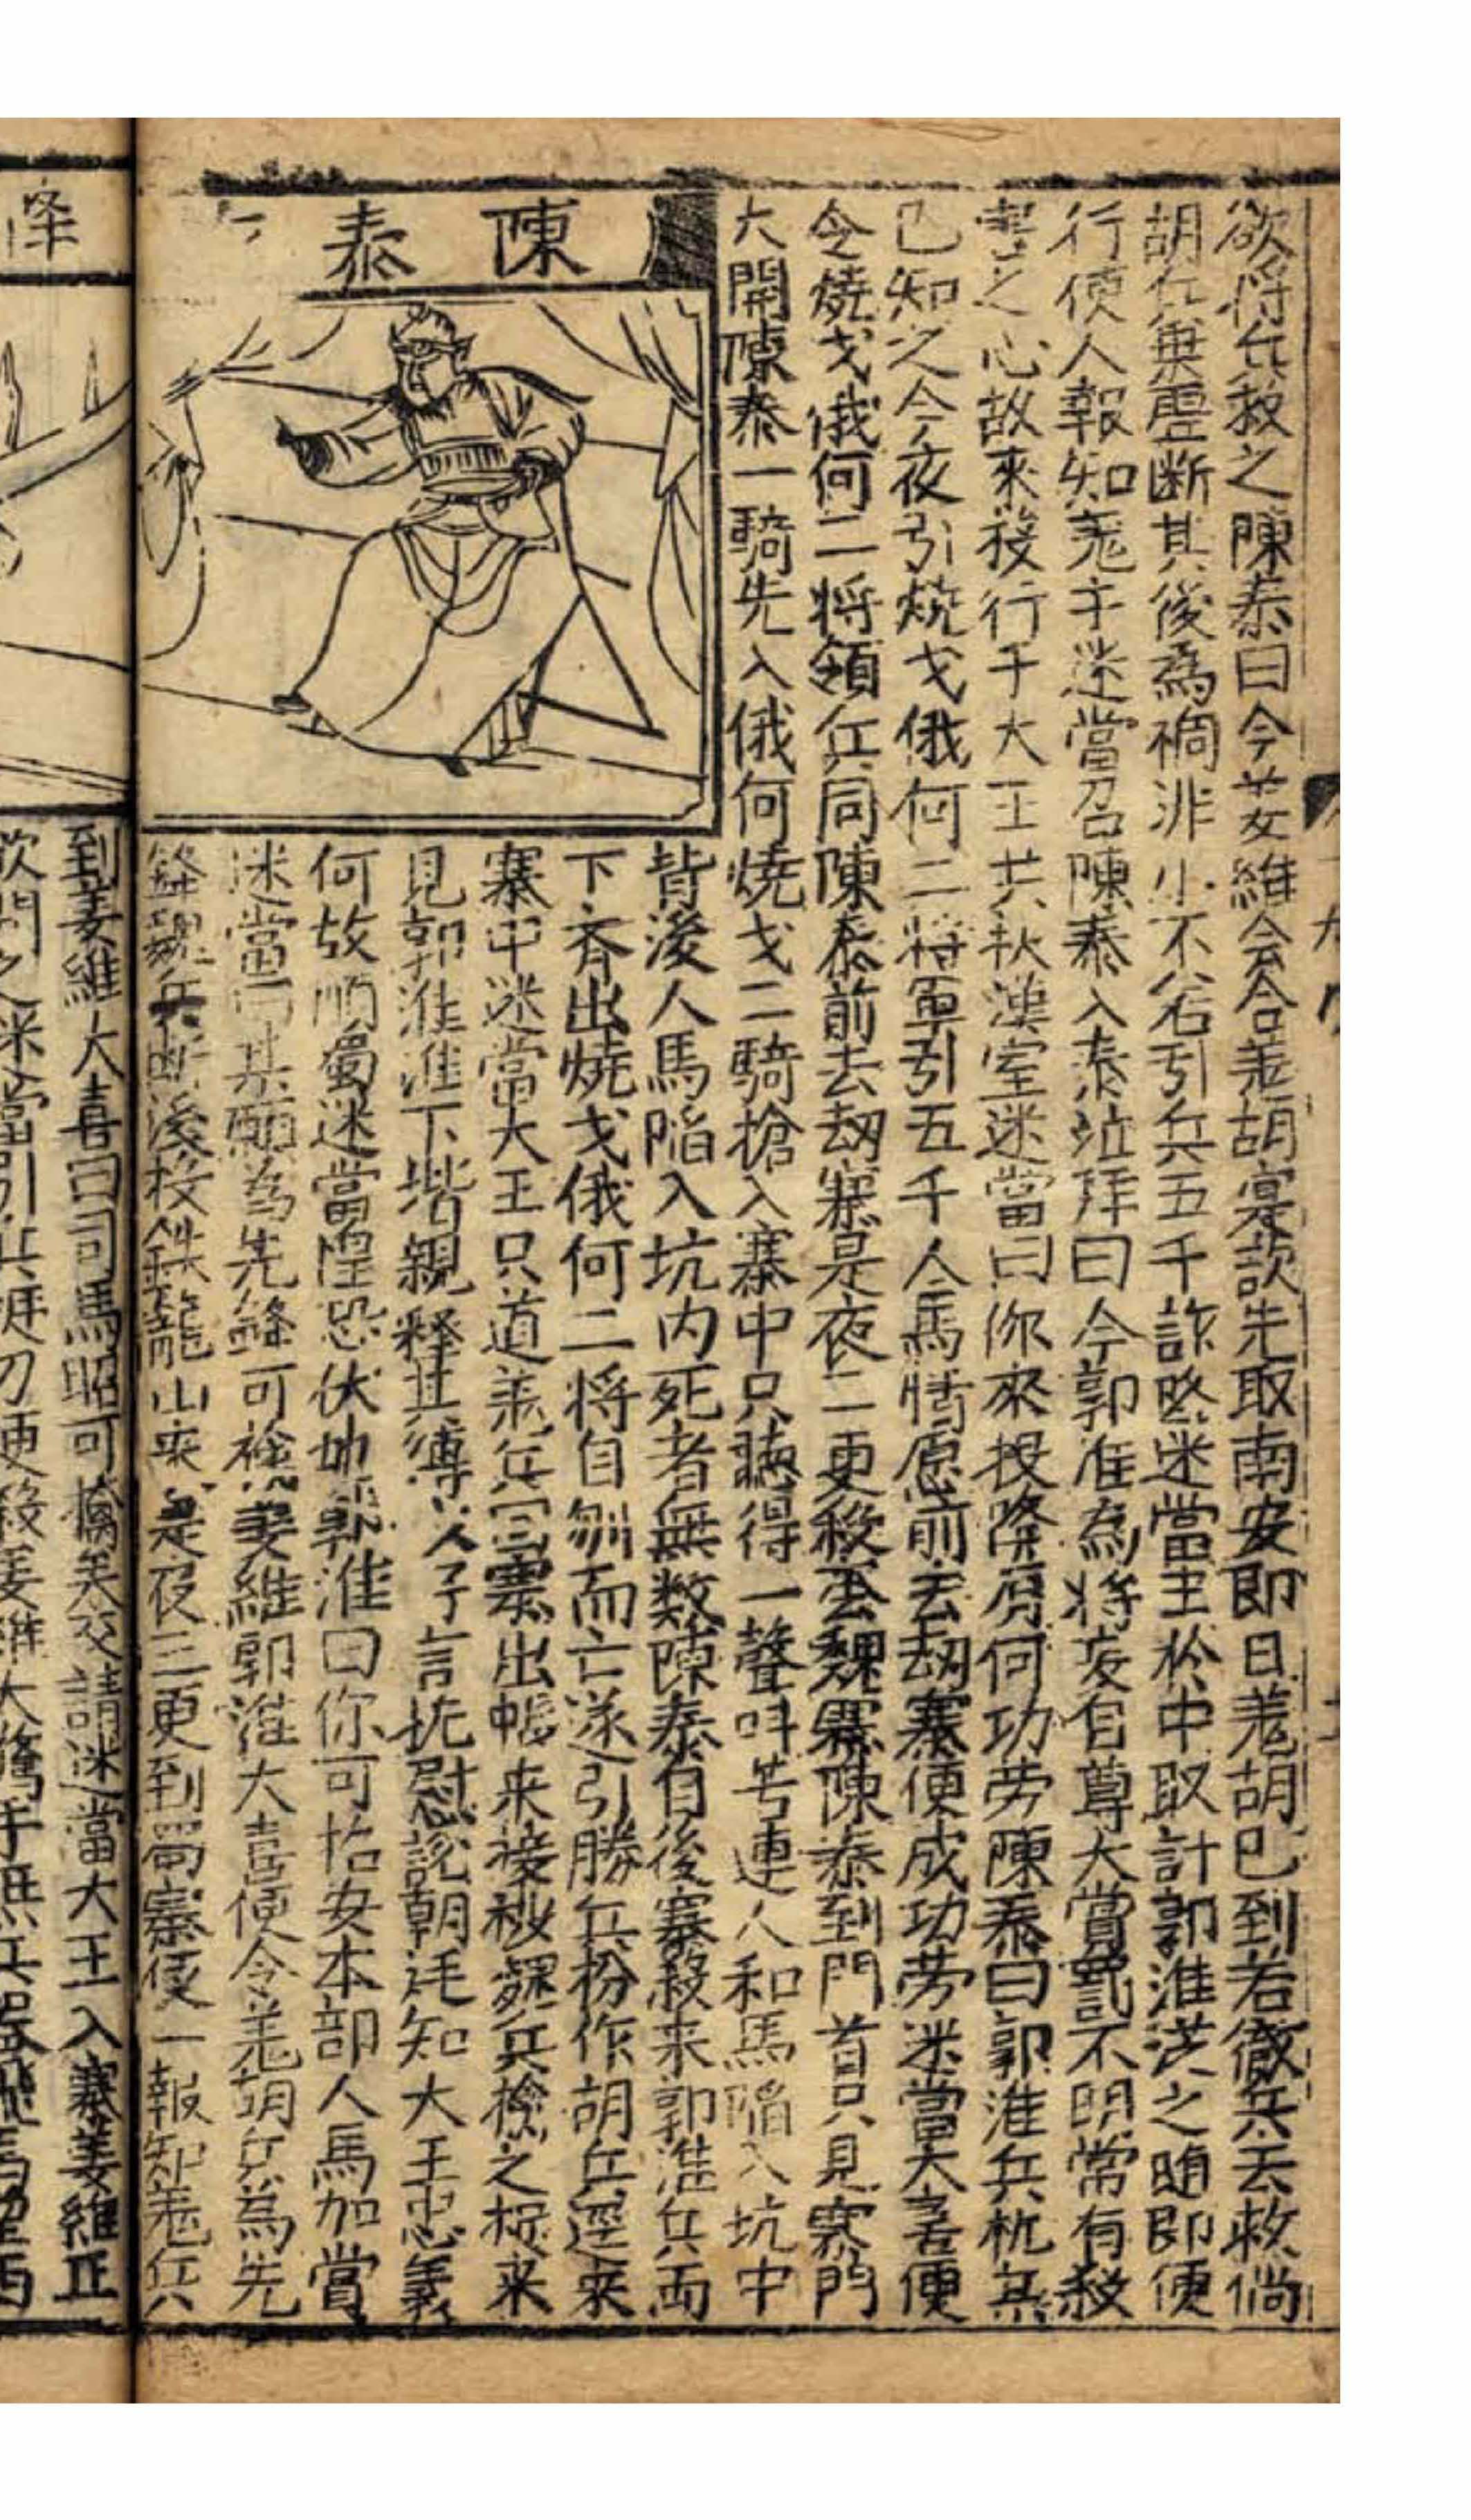 陳泰
欲將兵救之陳泰曰今姜維会合羌胡寨欲先取南安即日羌胡已到若徹兵去救倘
胡兵乗虛断其後為禍非小不若引兵五千詐降迷當王於中取計郭淮従之随即便
行便人報知羌王迷當召陳泰入泰泣拜曰今郭淮為將妄自尊大賞罰不明常有殺
害之心故來投行于大王共扶漢室迷當曰你來投降有何功劳陳泰曰郭淮兵机某
已知之今夜引燒戈俄何二將軍引五千人馬情愿前去刼寨便成功劳迷當大喜便
令燒戈俄何二将領兵同陳泰前去刼寨是夜二更殺至魏寨陳泰到門首只見寨門
大開陳泰一騎先入俄何燒戈二騎搶入寨中只聽得一聲呌苦連人和馬陷入坑中
背後人馬陷入坑内死者無数陳泰自後寨殺来郭淮兵両
下齐出燒戈俄何二将自刎而亡遂引勝兵扮作胡兵逕來
寨中迷當大王只道羌兵囬寨出帳来接被魏兵擒之梜来
見郭淮淮下堦親釋其縛以人子言抚慰說朝廷知大王忠義
何故順蜀迷當惶恐伏地郭淮曰你可招安本部人馬加賞
迷當曰某願為先鋒可擒姜維郭淮大喜便令羌胡兵為先
鋒魏兵断後投鉄籠山来是夜三更到蜀寨使一報知羌兵
到姜維大喜曰司馬昭可擒矣交請迷當大王入寨姜維正